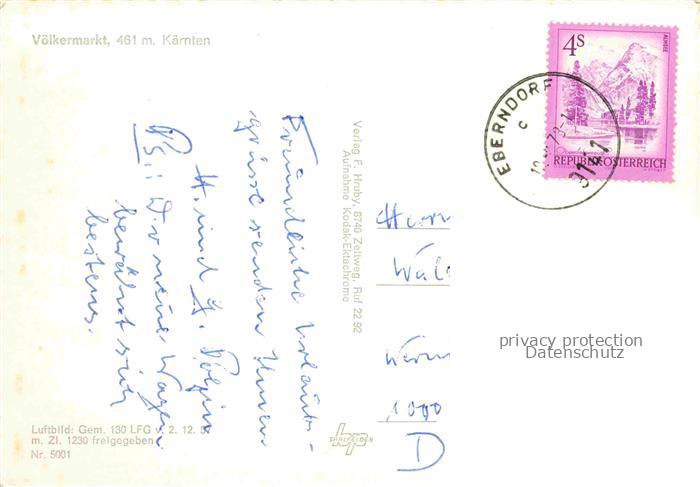 Völkermarkt, 461 m, Kärnten
4 S
ALMSEE
REPUBLIK ÖSTERREICH
EBERNDORF
c
9141
Freundliche Urlaubs-
grüsse senden Ihnen
H. und
PS.: Der neue Wagen
bewährt sich
bestens.
Verlag F. Hruby, 8740 Zeltweg, Ruf 22 92
Aufnahme Kodak-Ektachrome
Herrn
1000
D
privacy protection
Datenschutz
Luftbild: Gem. 130 LFG v. 2. 12. 57
m. Zl. 1230 freigegeben
Nr. 5001